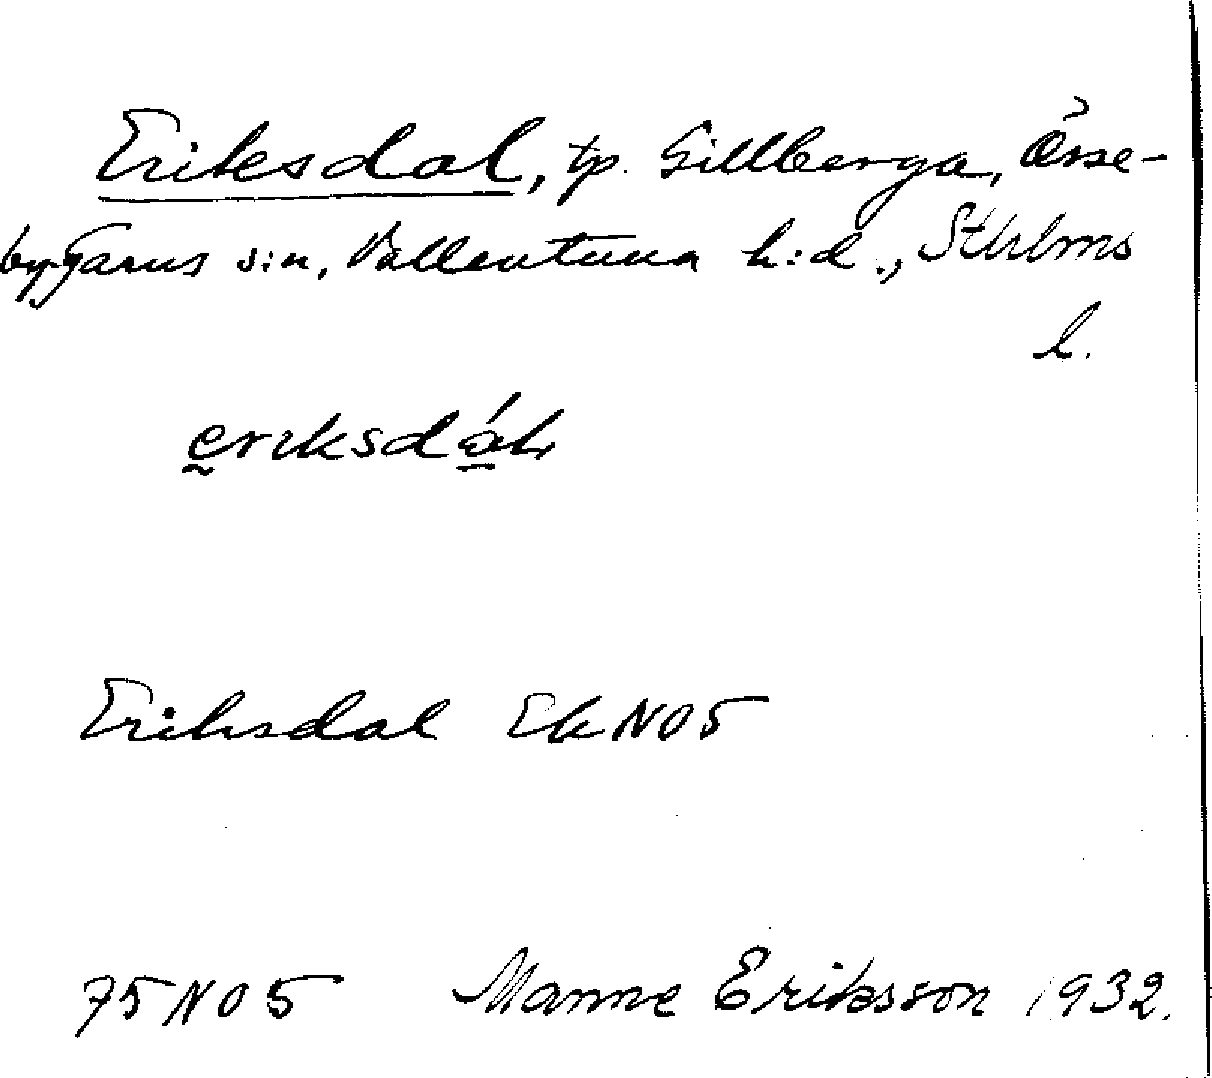 Eriksdal, tp. Gillberga, Össe-
bygarns s:n, Vallentuna h:d., Sthlms
l.
eriksdál
Eriksdal Ek NO5
75 NO 5 Manne Eriksson 1932.